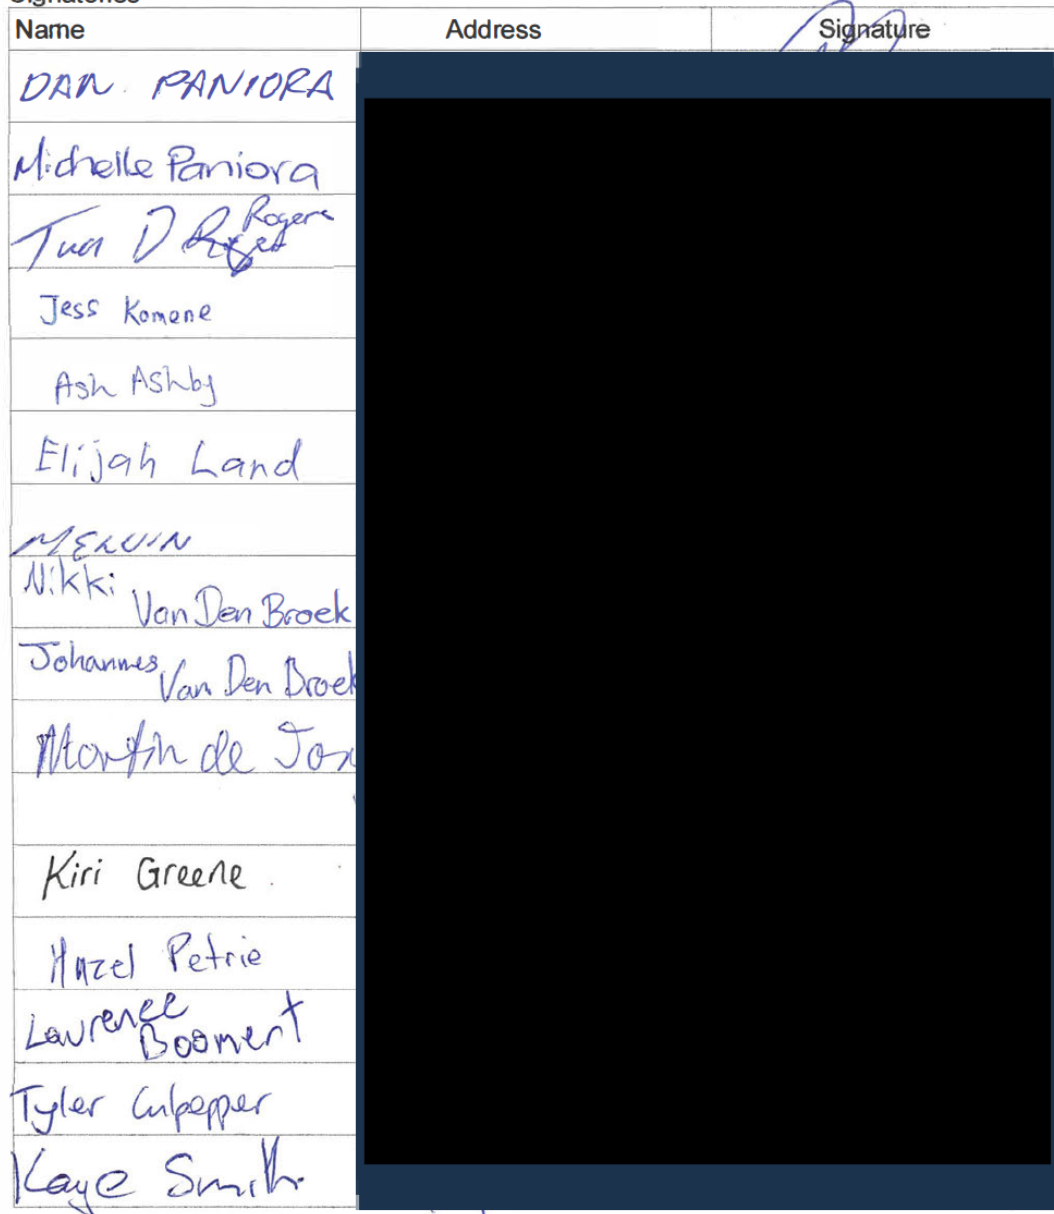 Signatories
Name Address Signature
DAN PANIORA
Michelle Paniora
D Rogers
Jess Komene
Ash Ashby
Elijah Land
MELVIN
Nikki
Van Den Broek
Johannes
Van Den Broek
Martin de
Kiri Greene
Hazel Petrie
Laurence
Boomert
Tyler Culpepper
Kaye Smith